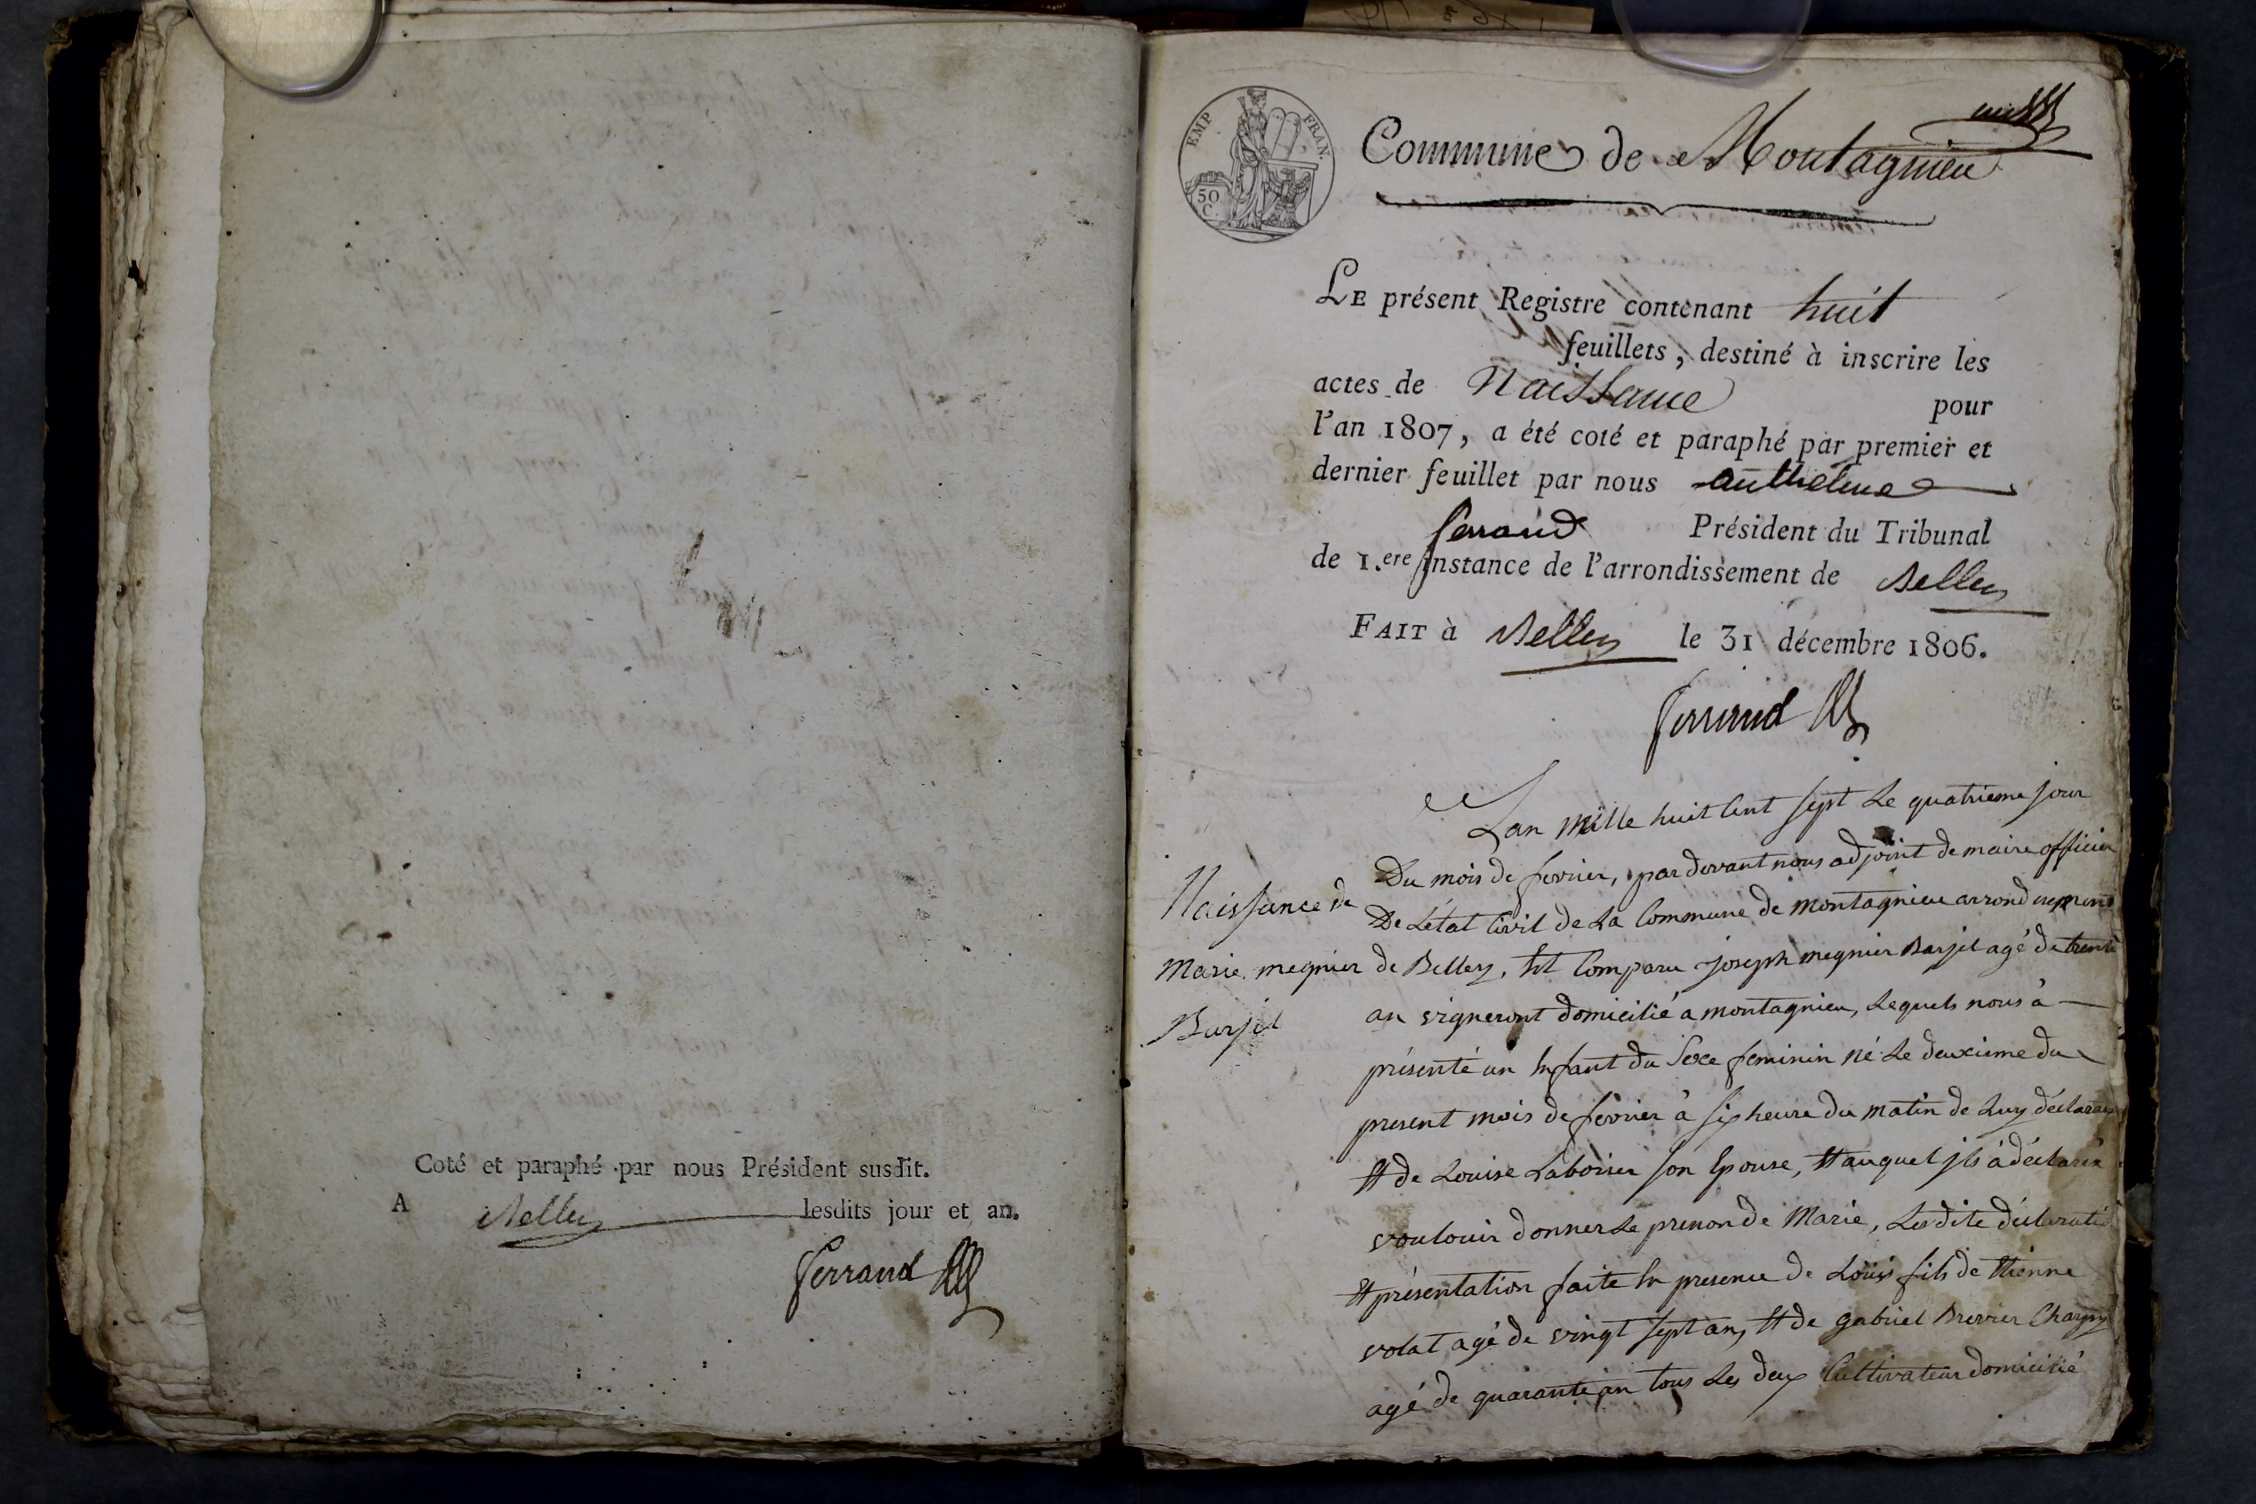 Coté et paraphé par nous Président susdit.
A Belley lesdits jour et an.
Ferrand
EMP. FRAN.
50
C.
Commune de Montagnieu
LE présent Registre contenant huit
feuillets, destiné à inscrire les
actes de Naissance pour
l'an 1807, a été coté et paraphé par premier et
dernier feuillet par nous anthelme
ferrand Président du Tribunal
de 1.ere instance de l'arrondissement de Belley
FAIT à Belley le 31 décembre 1806.
ferrand
Naissance de
Marie megnier
Barjot
Lan mille huit Cent sept Le quatrieme jour
Du mois de fevrier, par devant nous adjoint de maire officier
De L'état Civil de La Commune de montagnieu arrondissement
de Belley, Est Comparu joseph megnier Barjot agé de trente
an vigneront domicilié a montagnieu, Lequels nous à
présenté un Enfant du Sexe feminin né Le deuxieme du
present mois de fevrier à six heure du matin de Luy déclarant
Et de Louise Laborier son Epouse, Et auquel jls à déclaré
vouloir donner Le prenon de Marie, Lesdite déclarati
Et présentation faite En presence de Loüis fils de Etienne
volat agé de vingt sept an, Et de gabriel Brevier Charpy
agé de quarante an tous Les deux Cultivateur domicilié